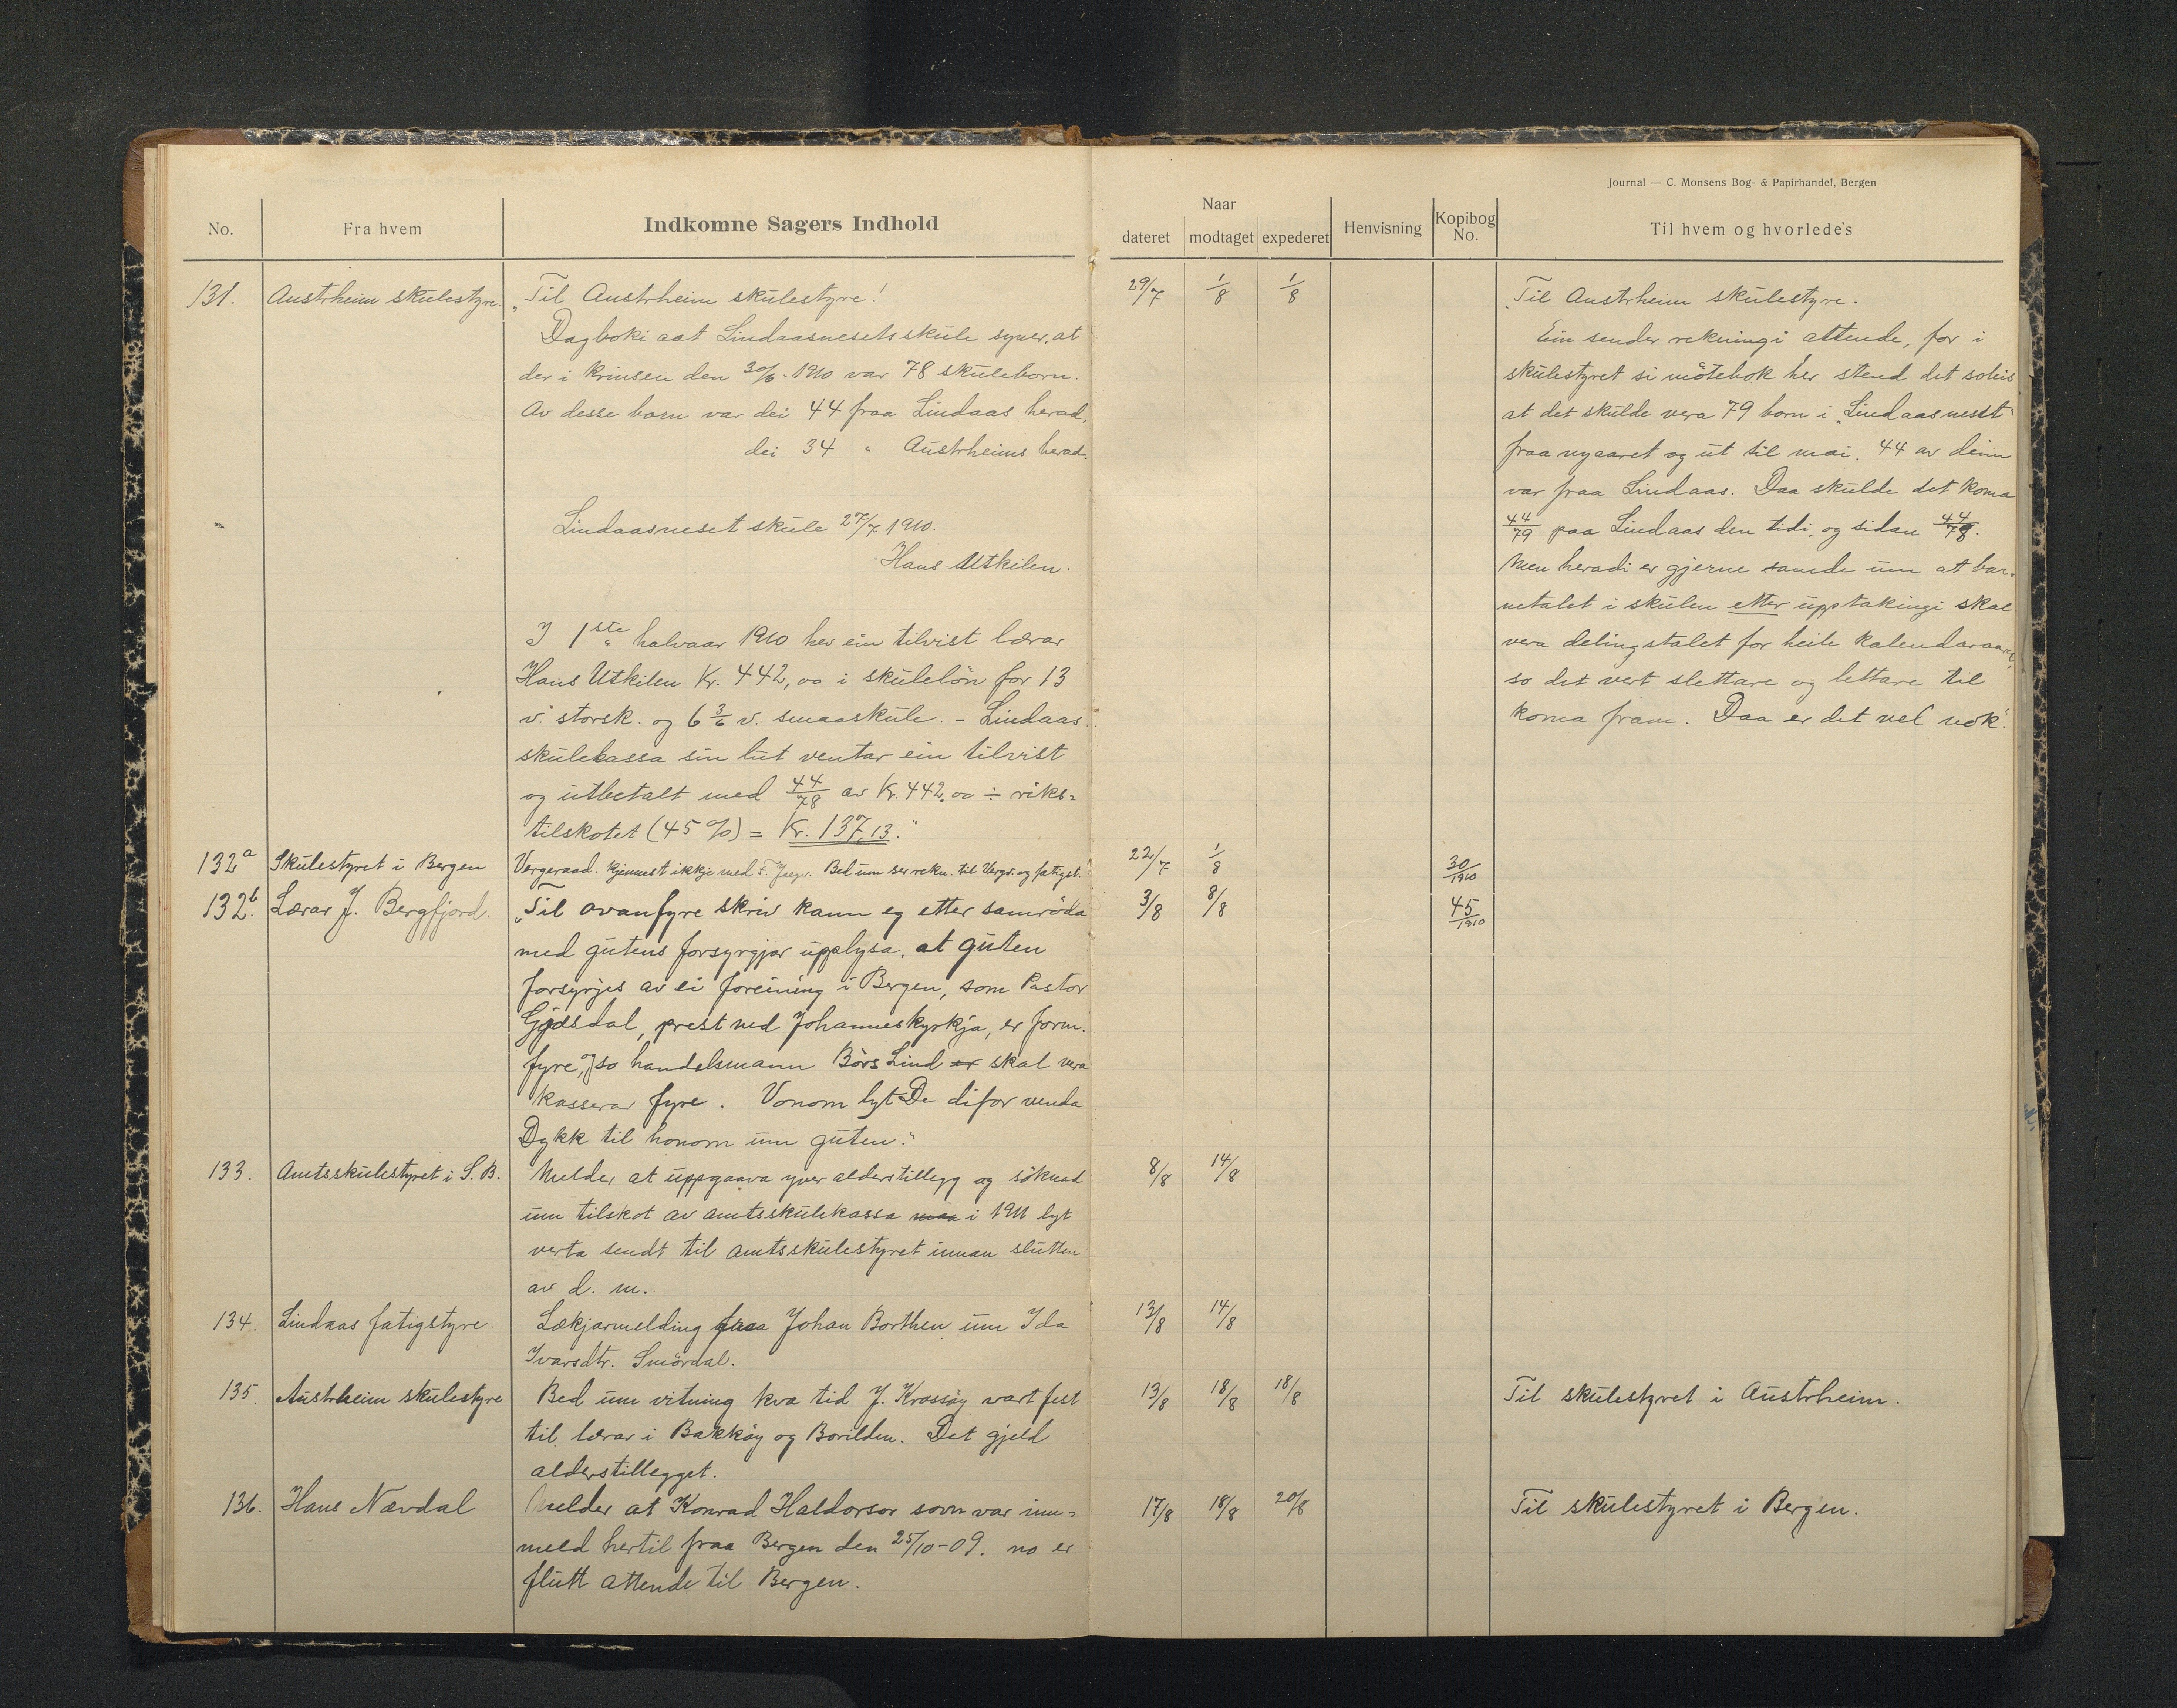 Journal — C. Monsens Bog- & Papirhandel, Bergen
No.
Fra hvem
Indkomne Sagers Indhold
Naar
dateret
modtaget
expederet
Henvisning
Kopibog No.
Til hvem og hvorledes
131. Austrheim skulestyre. „Til Austrheim skulestyre!
Dagboki aat Lindaasnesets skule syner, at
der i krinsen den 30/6-1910 var 78 skuleborn.
Av desse born var dei 44 fraa Lindaas herad,
dei 34 " Austrheims herad.
Lindaasneset skule 27/7 1910.
Hans Utkilen.
I 1ste halvaar 1910 hev ein tilvist lærar
Hans Utkilen Kr. 442,00 i skuleløn for 13
v. storsk. og 6 3/6 v. smaaskule. - Lindaas
skulekassa sin lut ventar ein tilvist
og utbetalt med 44/78 av Kr. 442,00 ÷ riks=
tilskotet (45 %) = Kr. 137,13."
29/7 1/8 1/8
Til Austrheim skulestyre.
Ein sender rekningi attende, for i
skulestyret si møtebok her stend det soleis
at det skulde vera 79 born i „Lindaasneset"
fraa nyaaret og ut til mai. 44 av deim
var fraa Lindaas. Daa skulde det koma
44/79 paa Lindaas den tidi, og sidan 44/78.
Men heradi er gjerne samde um at bar-
netalet i skulen etter upptakingi skal
vera delingstalet for heile kalendaraaret,
so det vert slettare og lettare til
koma fram. Daa er det vel nok.
132a Skulestyret i Bergen Vergeraad. kjennest ikkje med F. Bed um ser rekn. til Vergr. og fatigst. 22/7 1/8 30/1910
132b. Lærar J. Bergfjord. „Til ovanfyre skriv kann eg etter samrøda 3/8 8/8 45/1910
med gutens forsyrgjar upplysa, at guten
forsyrjes av ei foreining i Bergen, som Pastor
Gjøsdal, prest ved Johanneskyrkja, er form.
fyre, og so handelsmann Børs Lind er skal vera
kasserar fyre. Vonom lyt De difor venda
Dykk til honom um guten."
133. Amtsskulestyret i S. B. Melder at uppgaava yver alderstillegg og søknad 8/8 14/8
um tilskot av amtsskulekassa maa i 1911 lyt
verta sendt til amtsskulestyret innan slutten
av d. m.
134. Lindaas fatigstyre. Lækjarmelding fraa Johan Borthen um Ida 13/8 14/8
Ivarsdtr. Smørdal.
135. Austrheim skulestyre Bed um vitning kva tid J. Krossøy vart fest 13/8 18/8 18/8 Til skulestyret i Austrheim.
til lærar i Bakkøy og Borilden. Det gjeld
alderstillegget.
136. Hans Nævdal Melder at Konrad Haldorsor sovn var inn= 17/8 18/8 20/8 Til skulestyret i Bergen.
meld hertil fraa Bergen den 25/10-09. no er
flutt attende til Bergen.